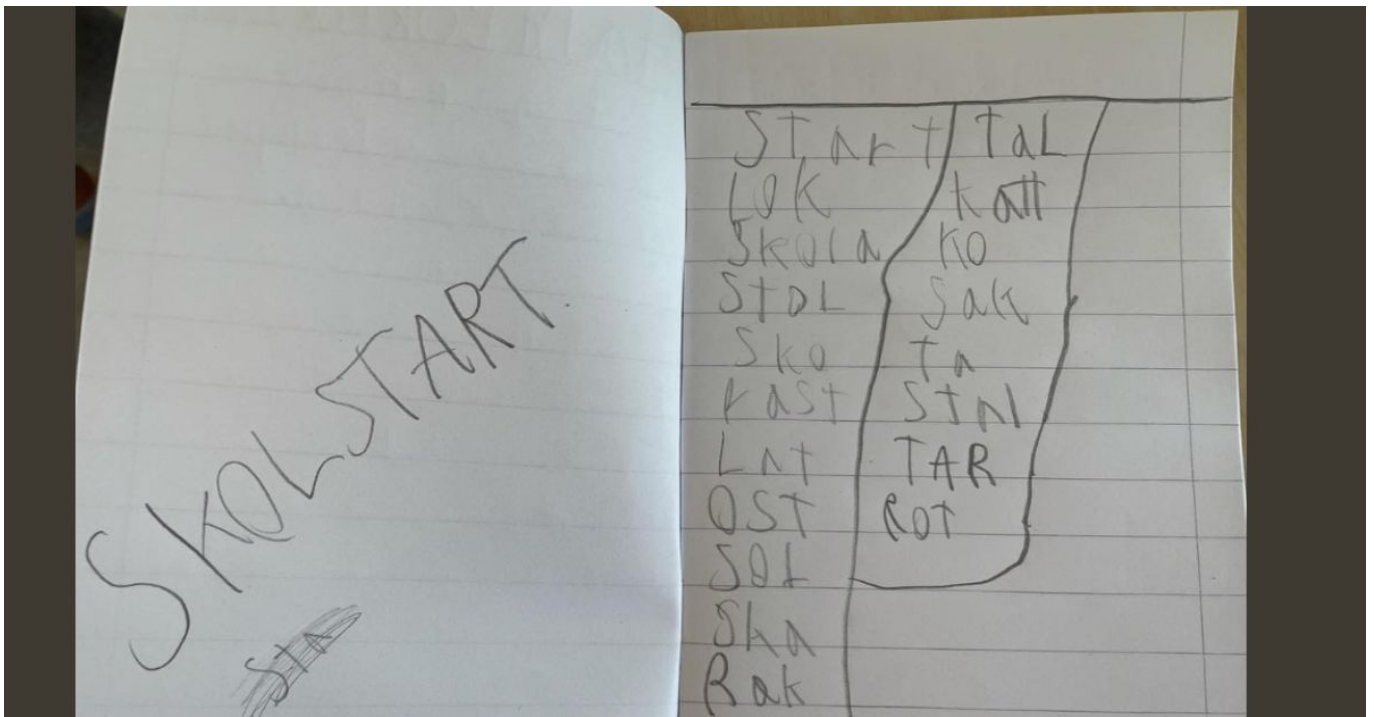 SKOLSTART.
STA
Start
LOK
Skola
StOL
Sko
rast
LAT
OST
SOL
Ska
Rak
TaL
Katt
KO
Sak
Ta
Stal
TAR
ROT